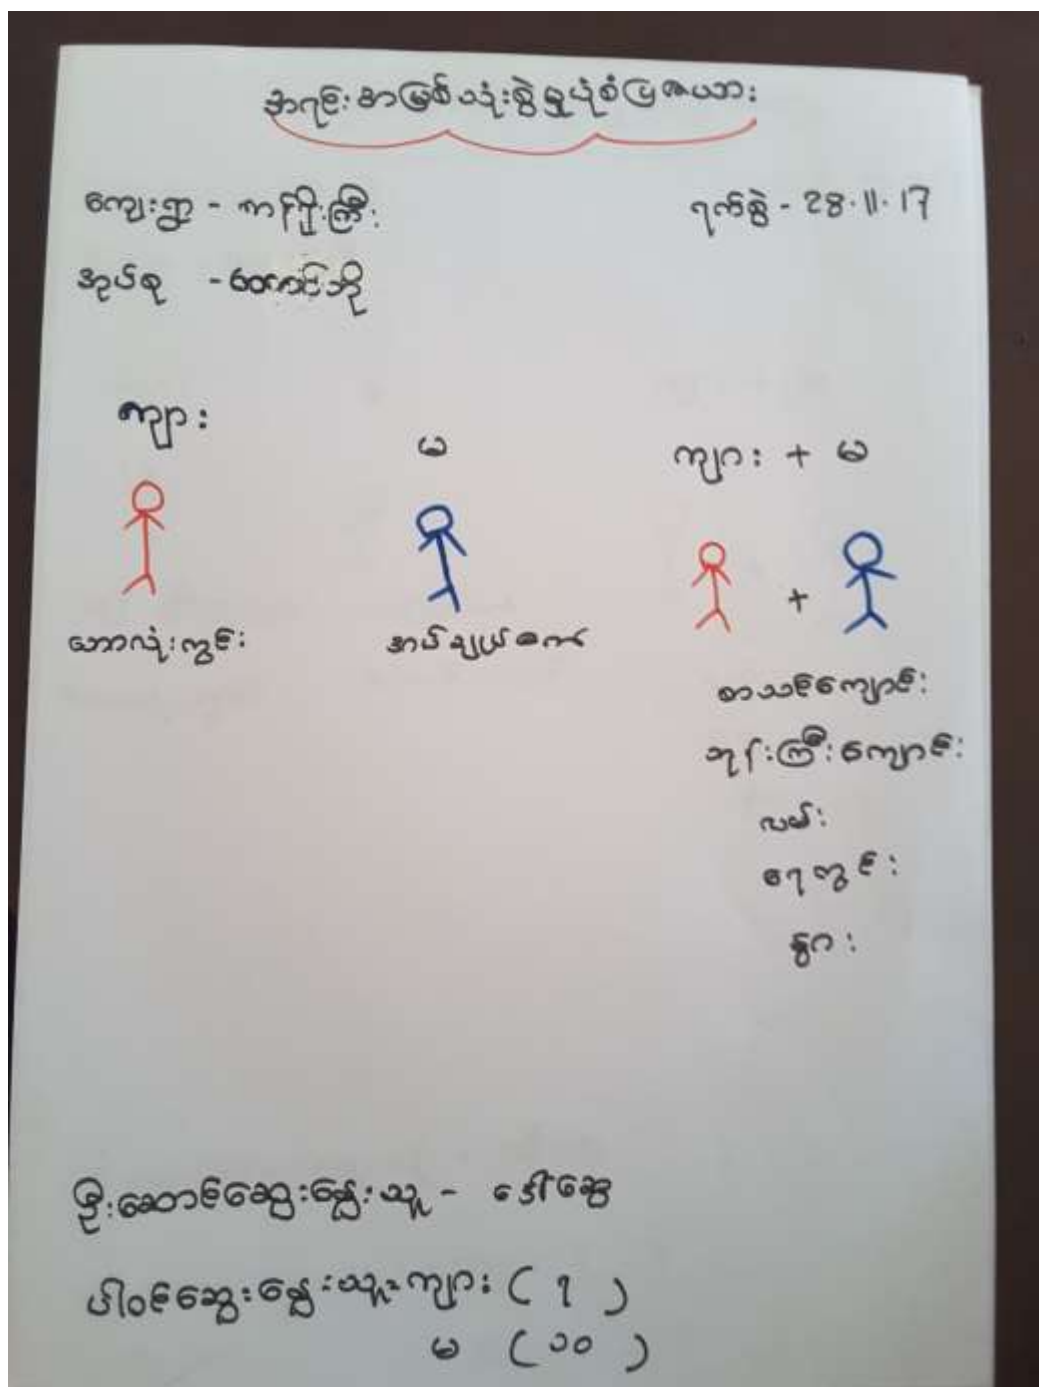 အရင်းအမြစ်သုံးစွဲမှုပုံစံပြဇယား
ကျေးရွာ - ကန်ကြီး
ရက်စွဲ - 28.11.17
အုပ်စု - တောင်ဘို
ကျား
မ
ကျား + မ
+
ဘောလုံးကွင်း
အပ်ချုပ်စက်
စာသင်ကျောင်း
ဘုန်းကြီးကျောင်း
လမ်း
ရေတွင်း
နွား
ဦးဆောင်ဆွေးနွေးသူ - ဒေါ်ဆွေ
ပါဝင်ဆွေးနွေးသူ - ကျား ( ၇ )
မ ( ၁၀ )